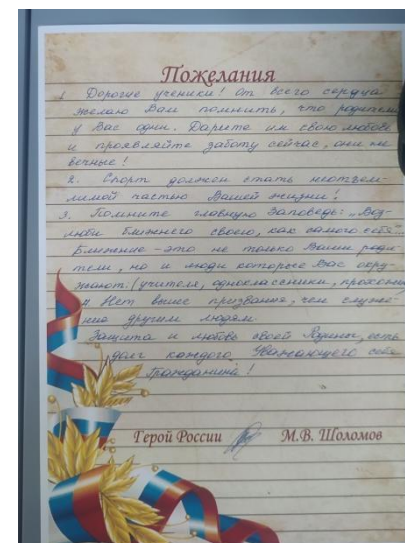 Пожелания
1. Дорогие ученики! От всего сердца
желаю Вам помнить, что родители
у Вас одни. Дарите им свою любовь
и проявляйте заботу сейчас, они не
вечные!
2. Спорт должен стать неотъем-
лимой частью Вашей жизни!
3. Помните главную Заповедь: „Воз-
люби ближнего своего, как самого себя"
Ближние - это не только Ваши роди-
тели, но и люди которые Вас окру-
жают. (учителя, одноклассники, прохожие
4. Нет выше призвания, чем служе-
ние другим людям.
Защита и любовь своей Родины, есть
долг каждого Уважающего себя
Гражданина!
Герой России М.В. Шоломов